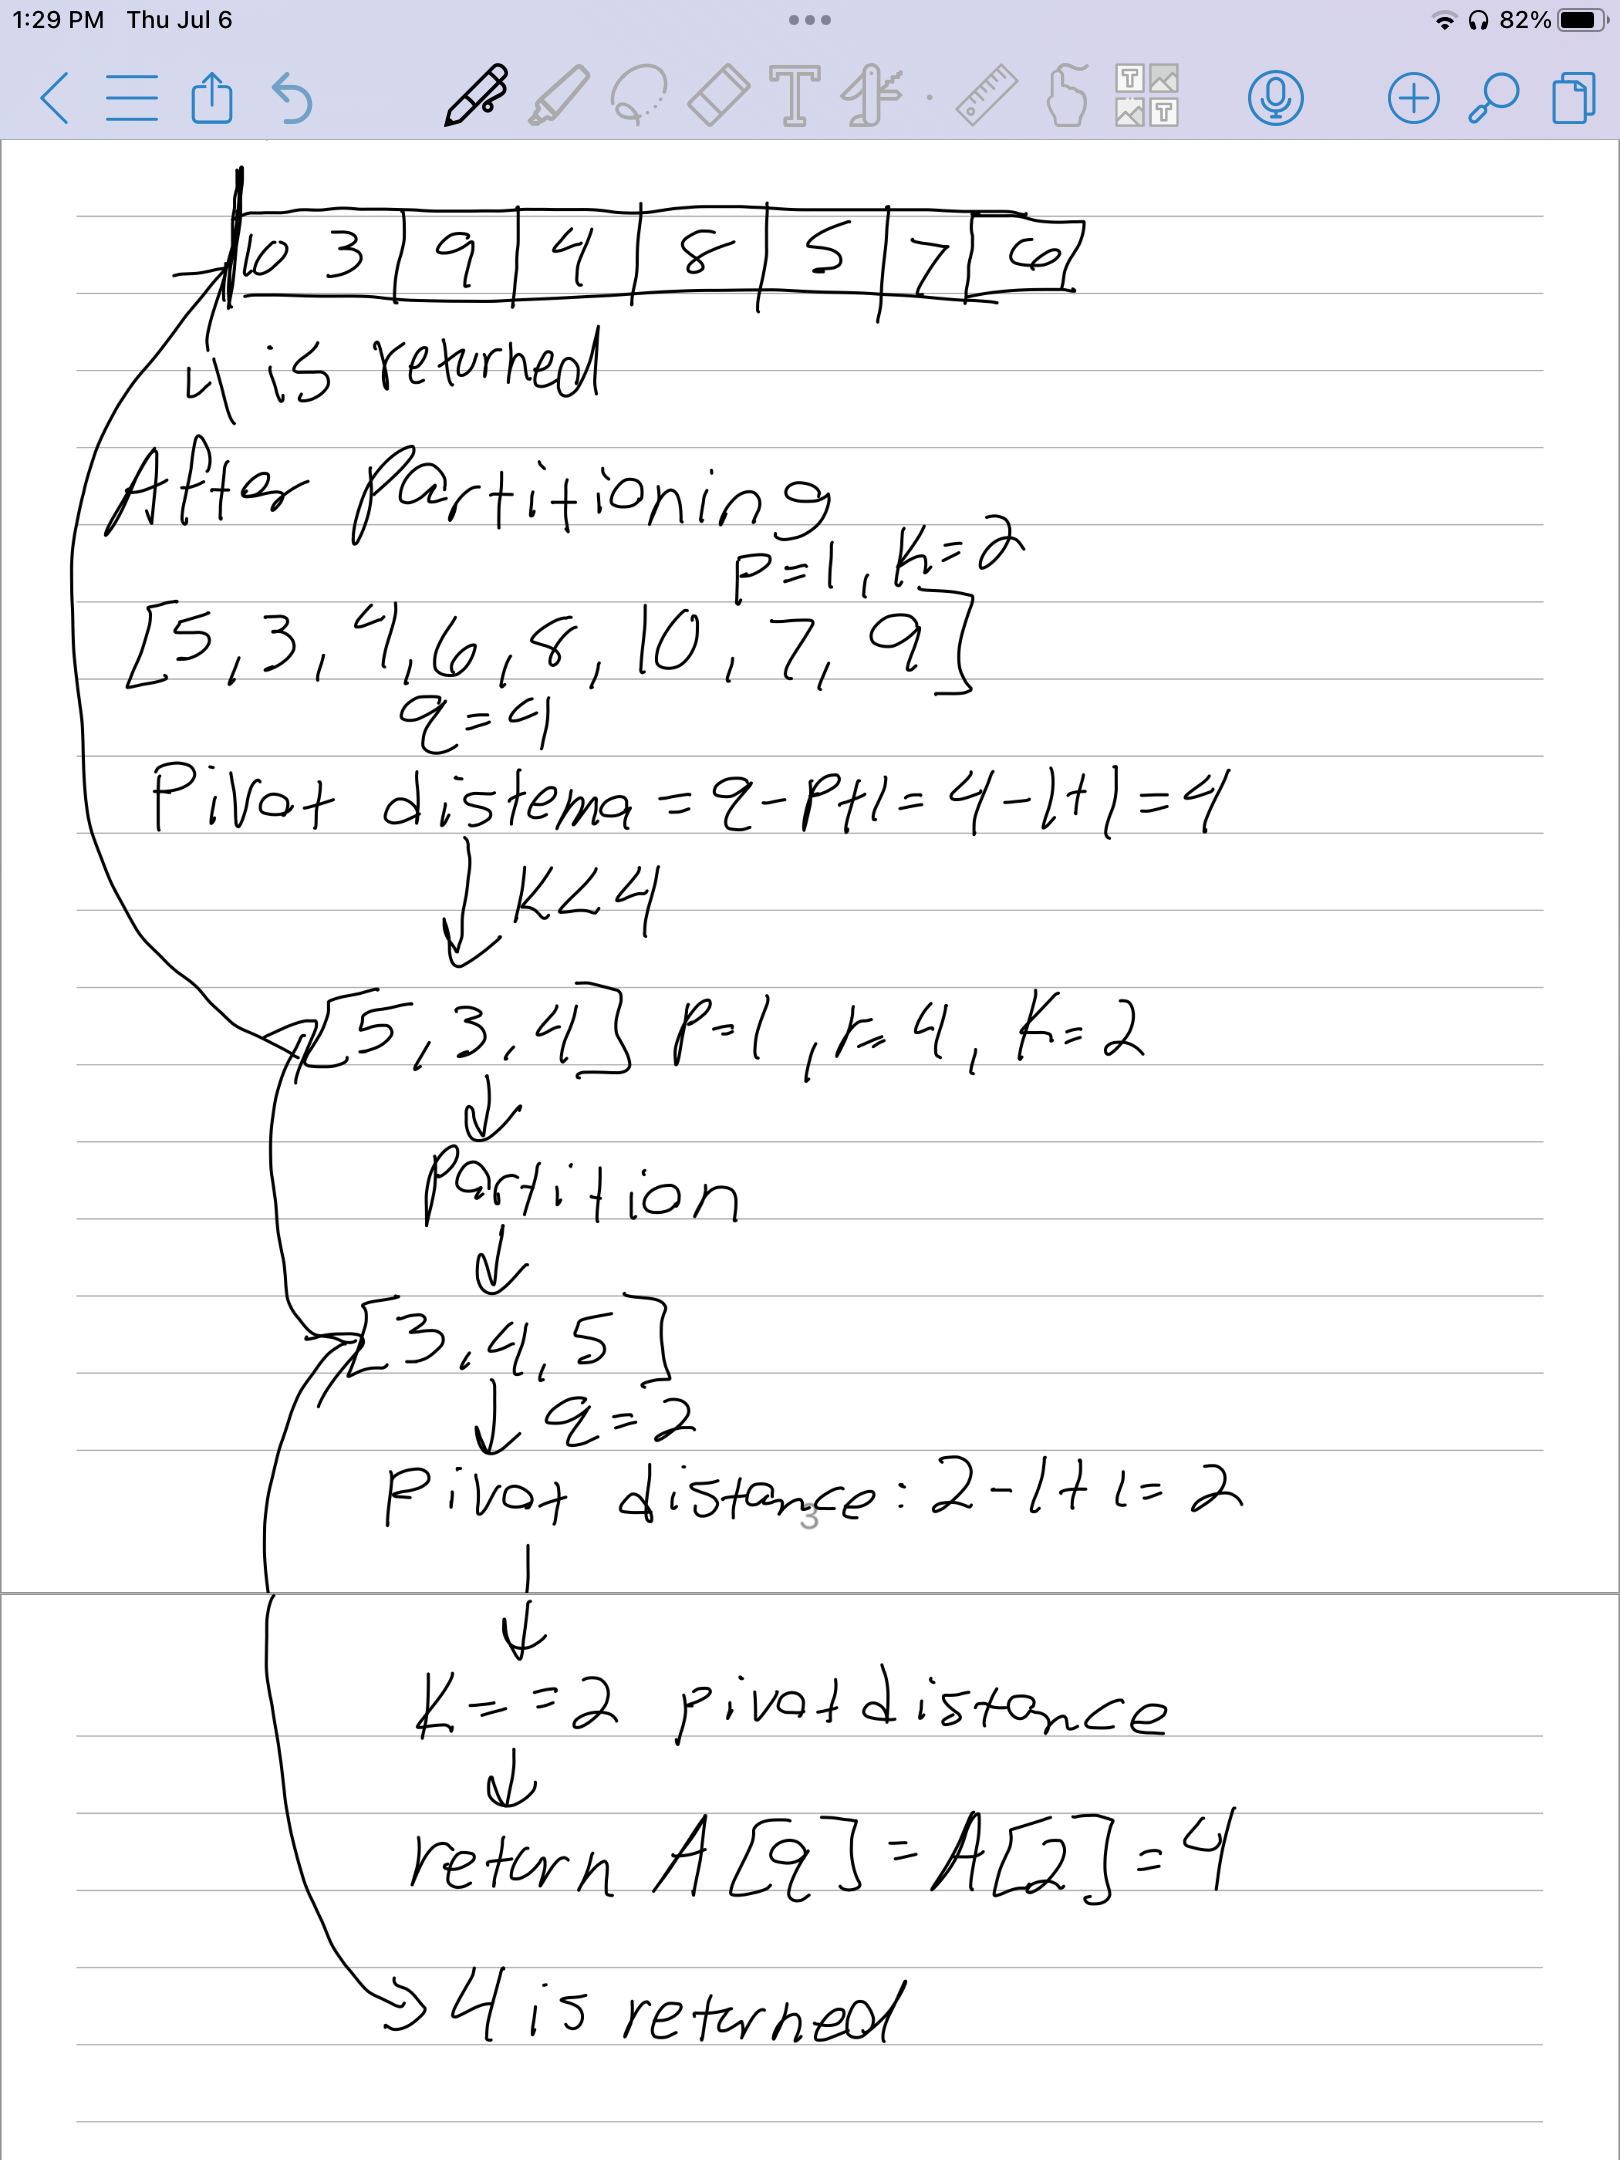 1:29 PM Thu Jul 6 82%
10 3 9 4 8 5 7 6
4 is returned
After Partitioning
P=1, K=2
[5,3,4,6,8,10,7,9]
q=4
Pivot distema = q-P+1= 4-1+1=4
K<4
[5,3,4] P=1, r=4, K=2
Partition
[3,4,5]
q=2
Pivot distance: 2-1+1=2
3
K==2 pivot distance
return A[q]=A[2]=4
4 is returned